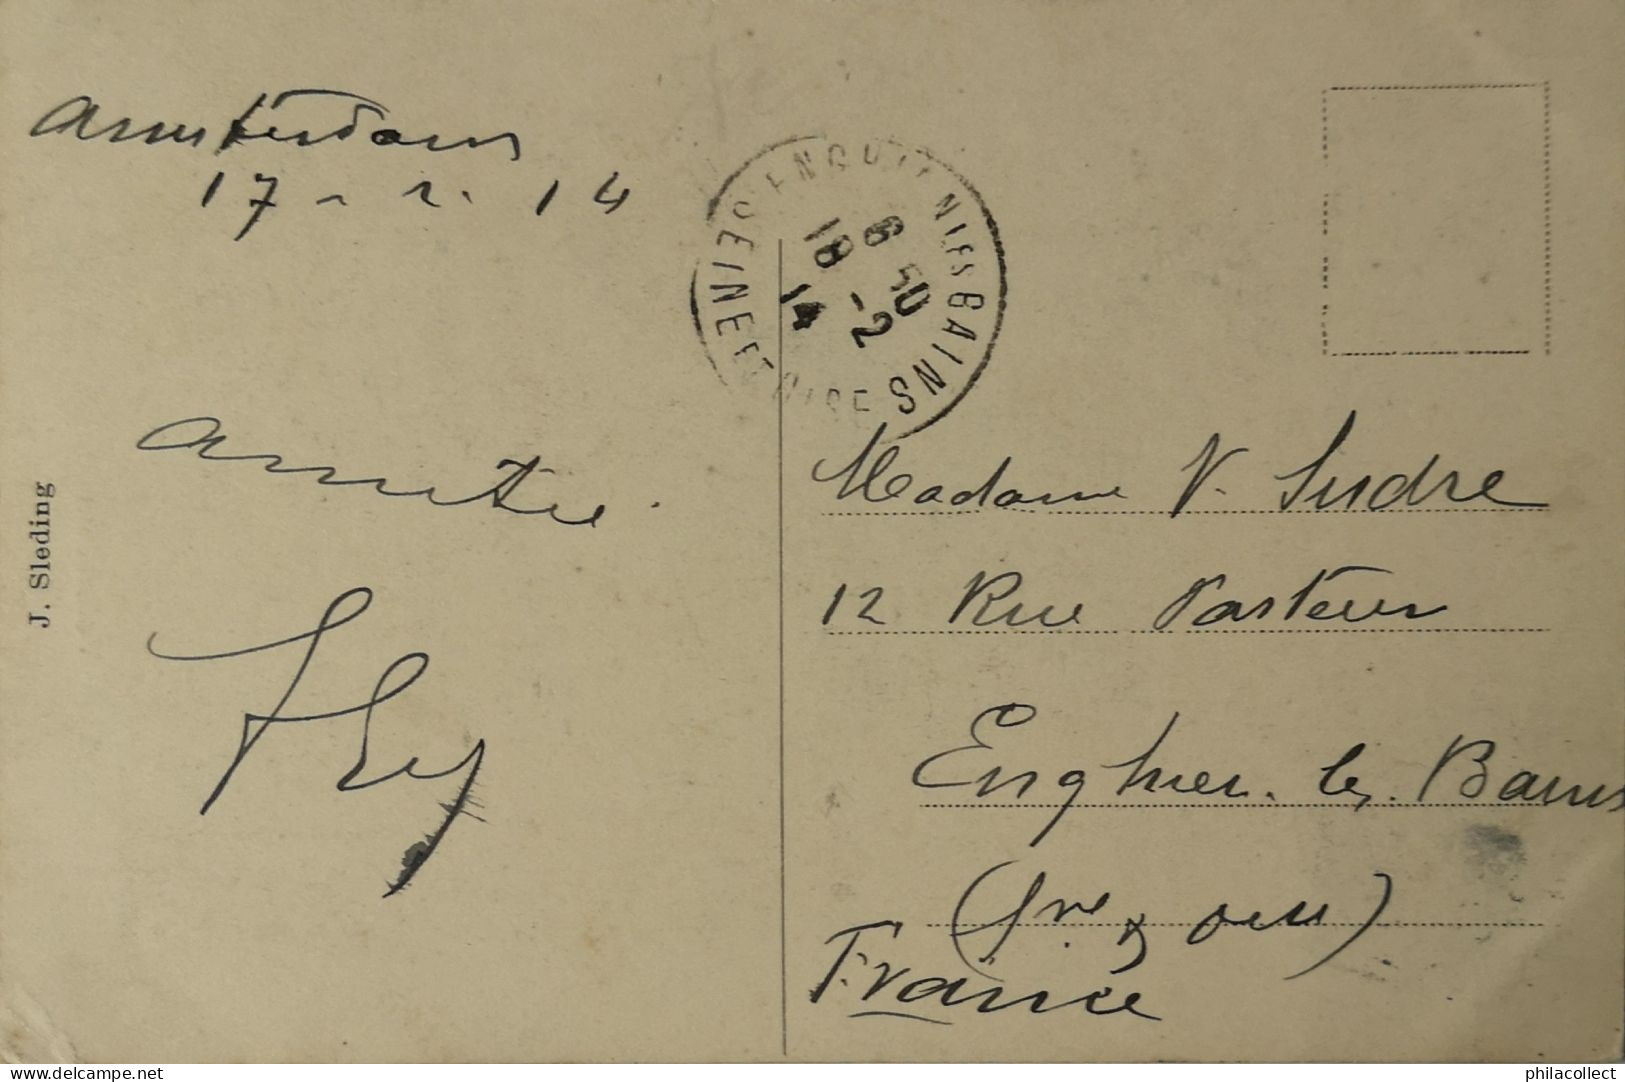 Amsterdam
17 - 2. 14
Amitié.
J. Sleding
ENGHIEN LES BAINS
SEINE ET OISE
6 50
18 -2
14
Madame V. Sudre
12 Rue Pasteur
Enghien. les. Bains
(Sne & Oise)
France
delcampe.net
philacollect